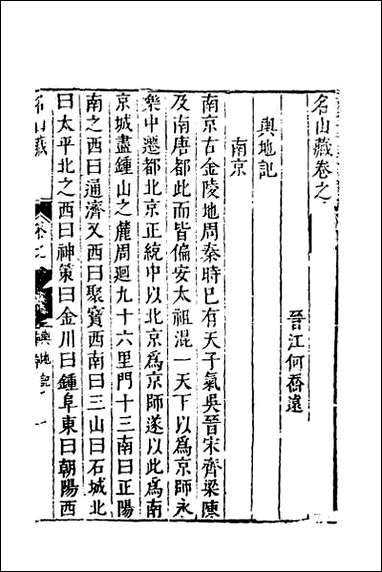 名山藏卷之
晉江何喬遠
輿地記
南京
南京古金陵地周秦時已有天子氣吳晉宋齊梁陳
及南唐都此而皆偏安太祖混一天下以爲京師永
樂中遷都北京正統中以北京爲京師遂以此爲南
京城盡鍾山之麓周迴九十六里門十三南曰正陽
南之西曰通濟又西曰聚寶西南曰三山曰石城北
曰太平北之西曰神策曰金川曰鍾阜東曰朝陽西
名山藏
卷之
輿地記
一